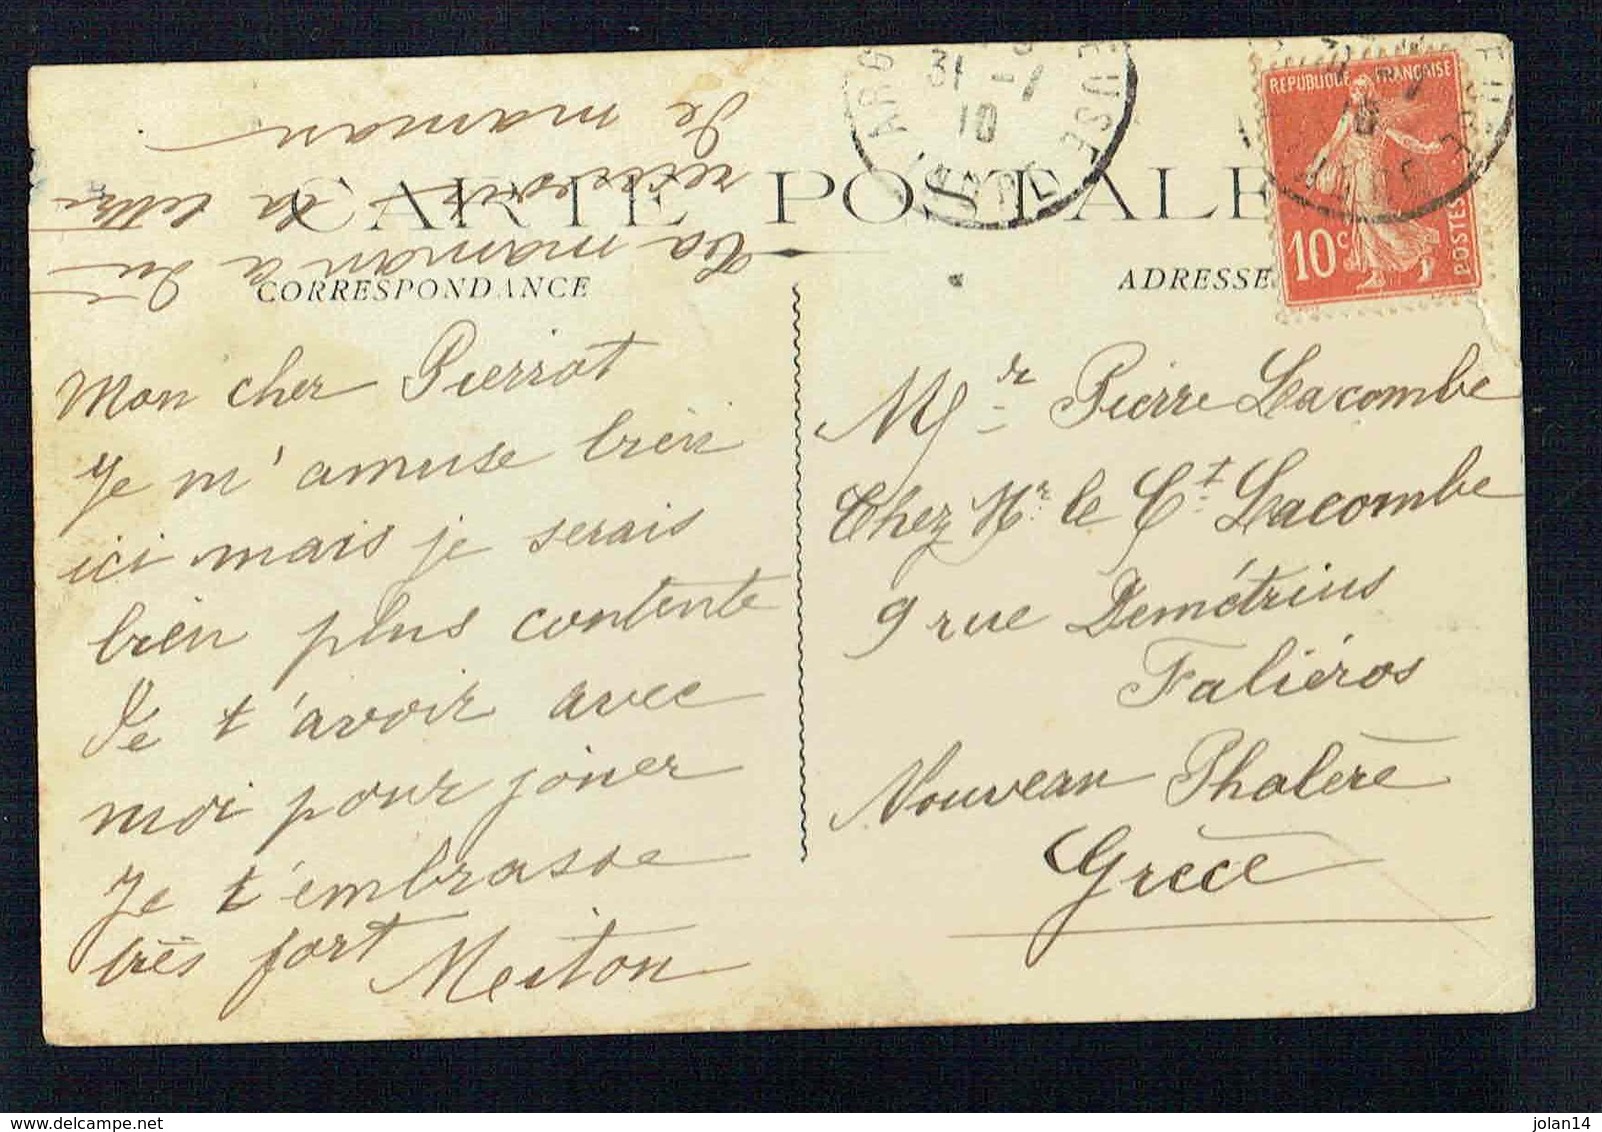 CARTE POSTALE
CORRESPONDANCE
ADRESSE
RÉPUBLIQUE FRANÇAISE
10c
POSTES
31 -1
10
Ta maman a dû
recevoir la lettre
de maman
Mon cher Pierrot
Je m'amuse bien
ici mais je serais
bien plus contente
de t'avoir avec
moi pour jouer
Je t'embrasse
très fort
Mr Pierre Lacombe
Chez Mr le Ct Lacombe
9 rue Démétrius
Faliéros
Nouveau Phalère
Grèce
jolan14